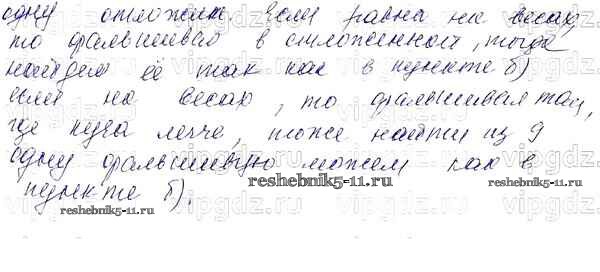 одну отложим, если равна на весах,
то фальшивая в отложенной, тогда
найдём её так как в пункте б)
если на весах, то фальшивая там,
где куча легче, тоже найти из 9
одну фальшивую можем как в
пункте б).
reshebnik5-11.ru
reshebnik5-11.ru